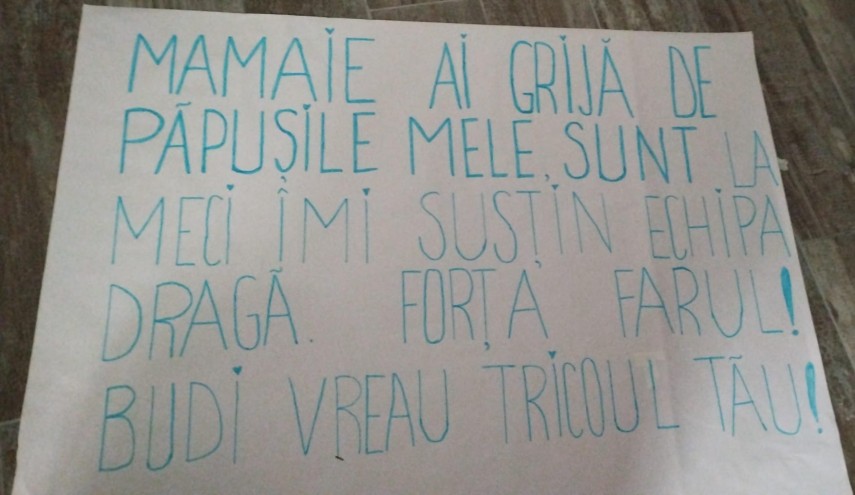 MAMAIE AI GRIJĂ DE
PĂPUȘILE MELE, SUNT LA
MECI ÎMI SUSȚIN ECHIPA
DRAGĂ. FORȚA FARUL!
BUDI VREAU TRICOUL TĂU!